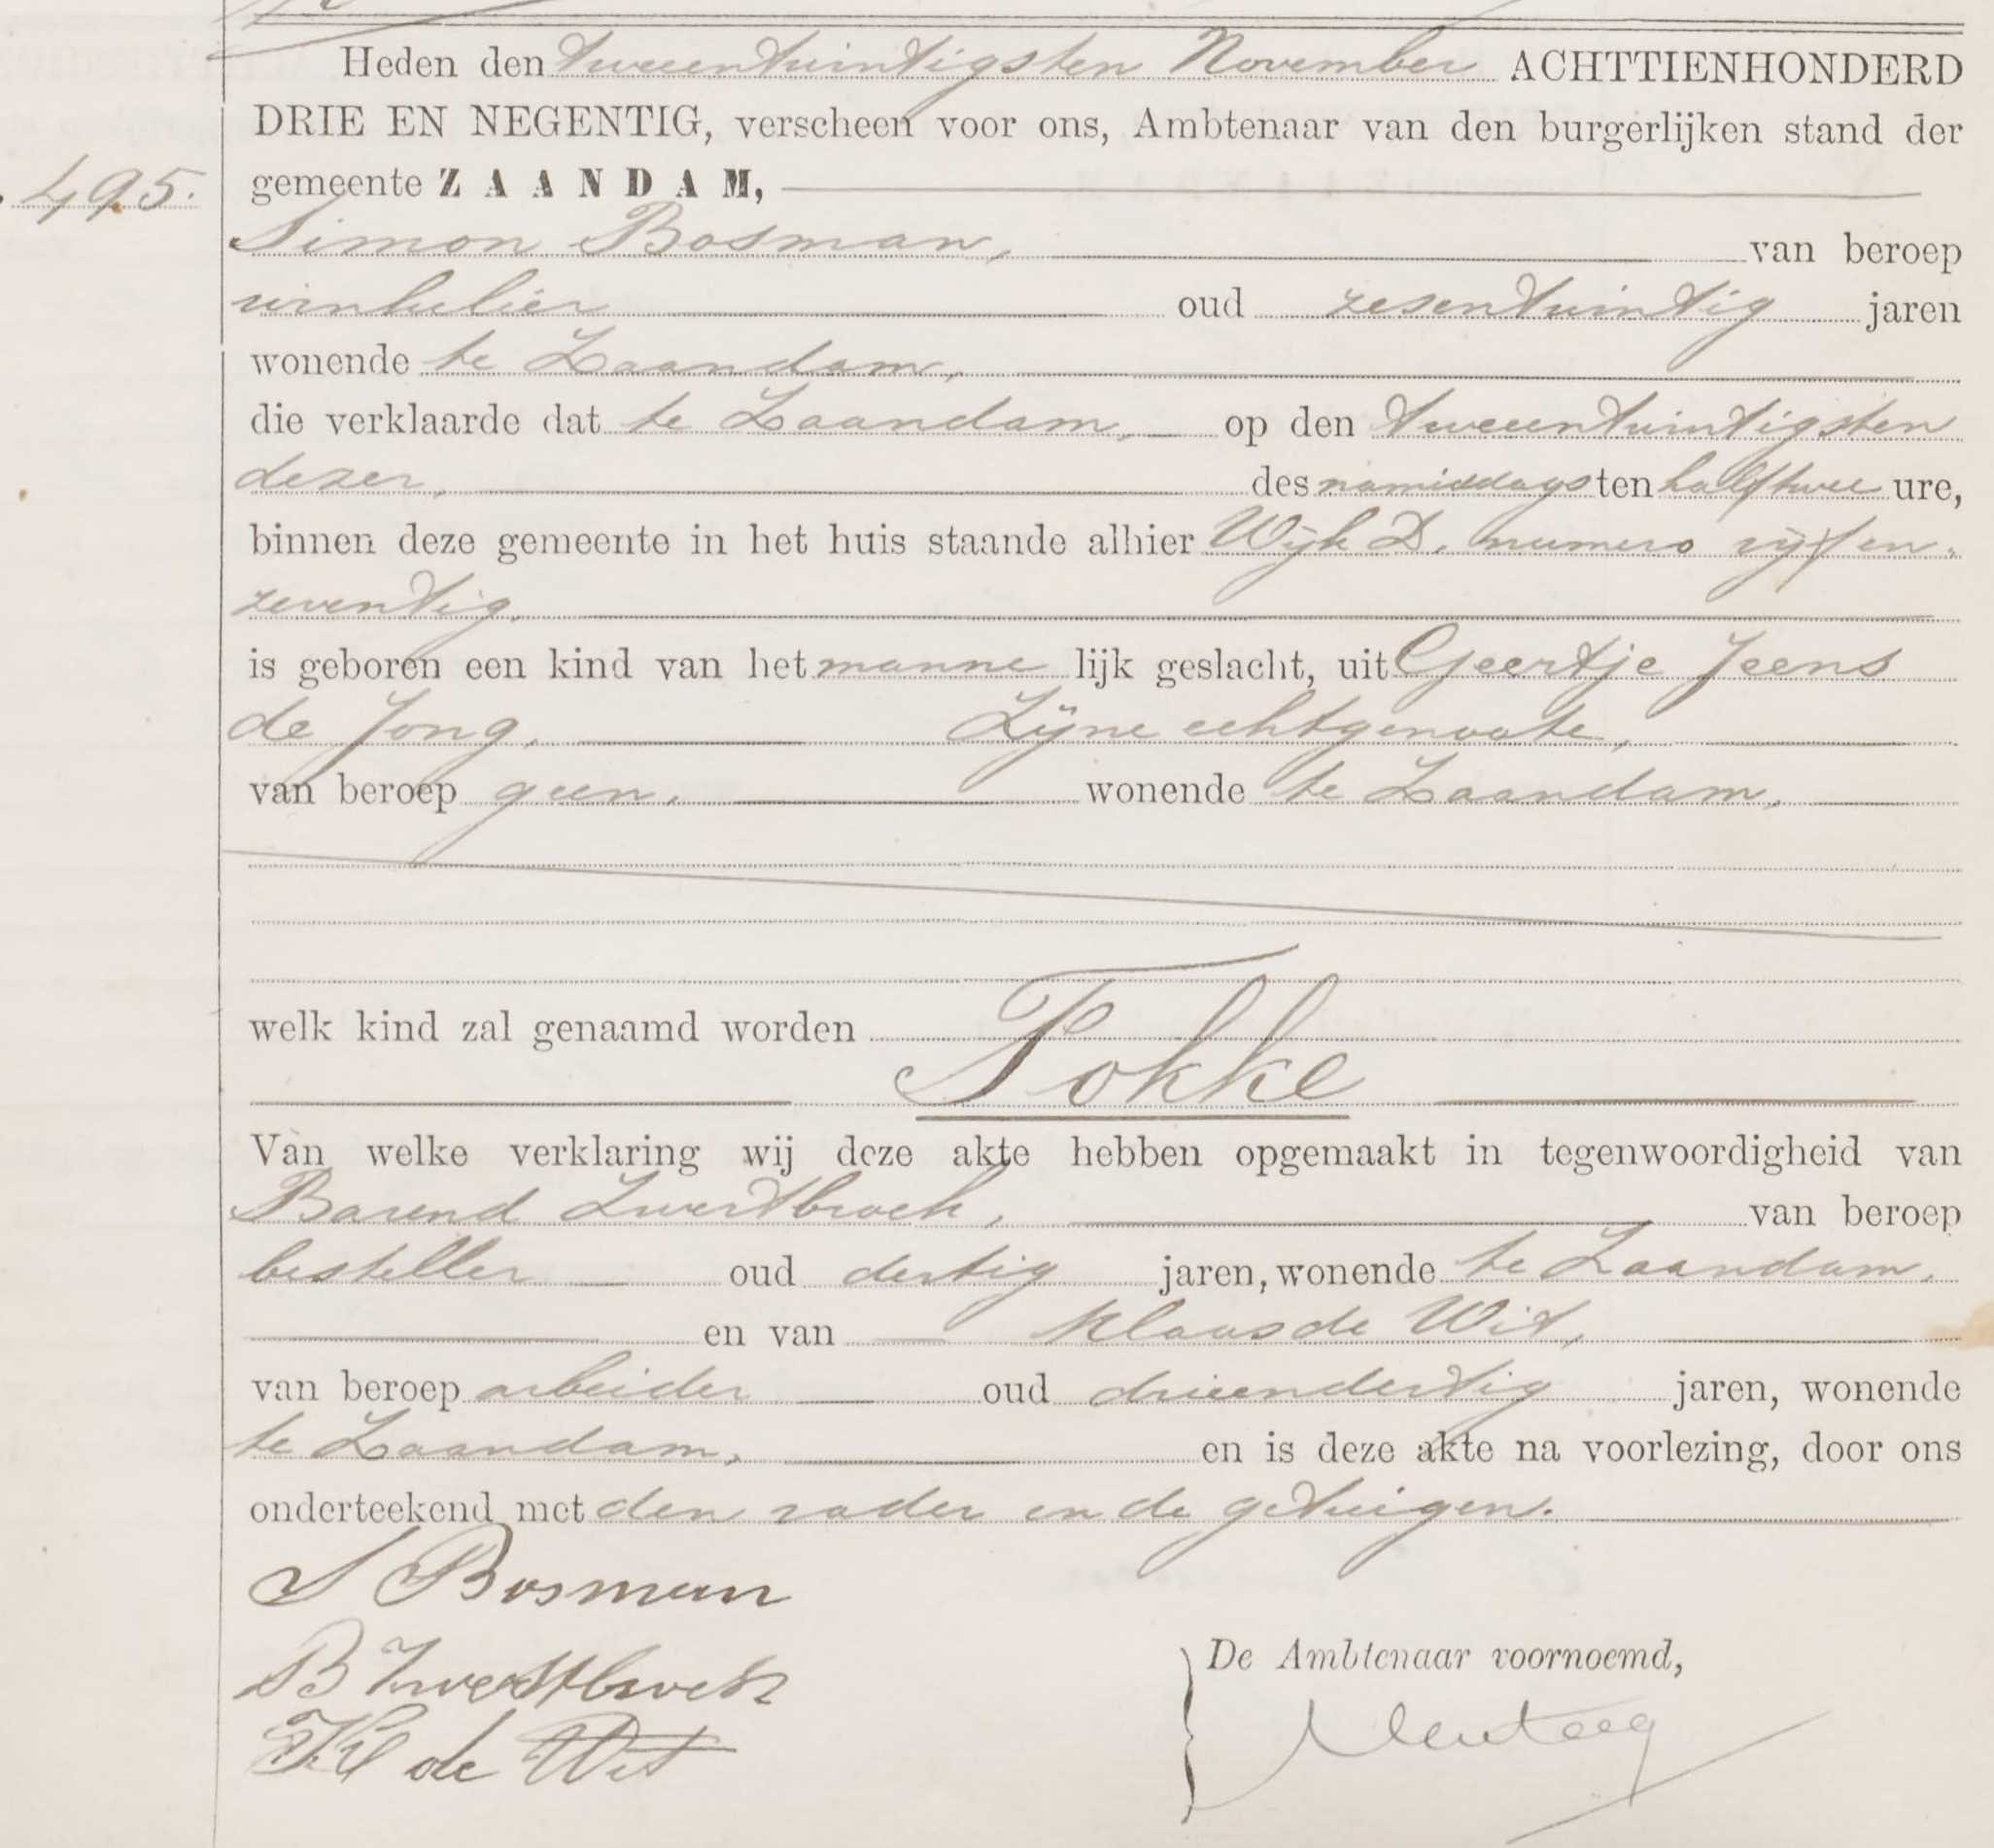 Heden den tweeentwintigsten November ACHTTIENHONDERD
DRIE EN NEGENTIG, verscheen voor ons, Ambtenaar van den burgerlijken stand der
495. gemeente ZAANDAM,
Simon Bosman, van beroep
winkelier oud zesentwintig jaren
wonende te Zaandam,
die verklaarde dat te Zaandam, op den tweeentwintigsten
dezer, des namiddags ten half twee ure,
binnen deze gemeente in het huis staande alhier Wijk D. numero vijf en
zeventig,
is geboren een kind van het manne lijk geslacht, uit Geertje Jeens
de Jong, Zijne echtgenoote,
van beroep geen, wonende te Zaandam,
welk kind zal genaamd worden
Fokke
Van welke verklaring wij deze akte hebben opgemaakt in tegenwoordigheid van
Barend Zwertbroek, van beroep
besteller oud dertig jaren, wonende te Zaandam,
en van Klaas de Wit,
van beroep arbeider oud drieendertig jaren, wonende
te Zaandam, en is deze akte na voorlezing, door ons
onderteekend met den vader en de getuigen.
S Bosman
B Zwertbroek
De Ambtenaar voornoemd,
Kl de Wit